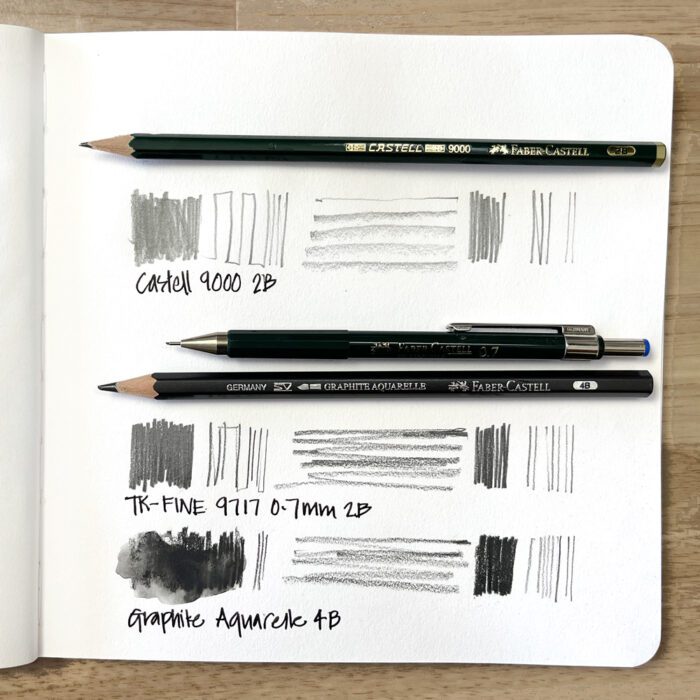 CASTELL 9000 FABER-CASTELL 2B
Castell 9000 2B
FABER-CASTELL 0.7
GERMANY GRAPHITE AQUARELLE FABER-CASTELL 4B
TK-FINE 9717 0.7mm 2B
Graphite Aquarelle 4B